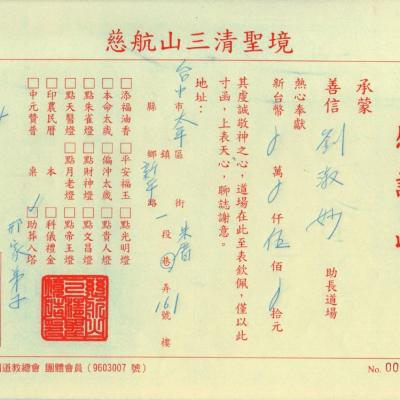 慈航山三清聖境
承蒙
善信 劉淑妙 助長道場
熱心奉獻
新台幣 萬 仟伍佰 拾元
其虔誠敬神之心，道場在此至表欽佩，僅以此
寸函，上表天心，聊誌謝意。
地址：
台中市太平區 街 朱眉
縣 鄉鎮 新平路一段 巷 弄161號 樓
□添福油香 □平安福玉 □點光明燈
□本命太歲 □偏沖太歲 □點貴人燈
□點朱雀燈 □點財神燈 □點文昌燈
□點天醫燈 □點月老燈 □點帝王燈
□印農民曆 本 □科儀禮金
□中元贊普 桌 □助葬入塔
邢家弟子
道教總會 團體會員 (9603007 號)
No. 00